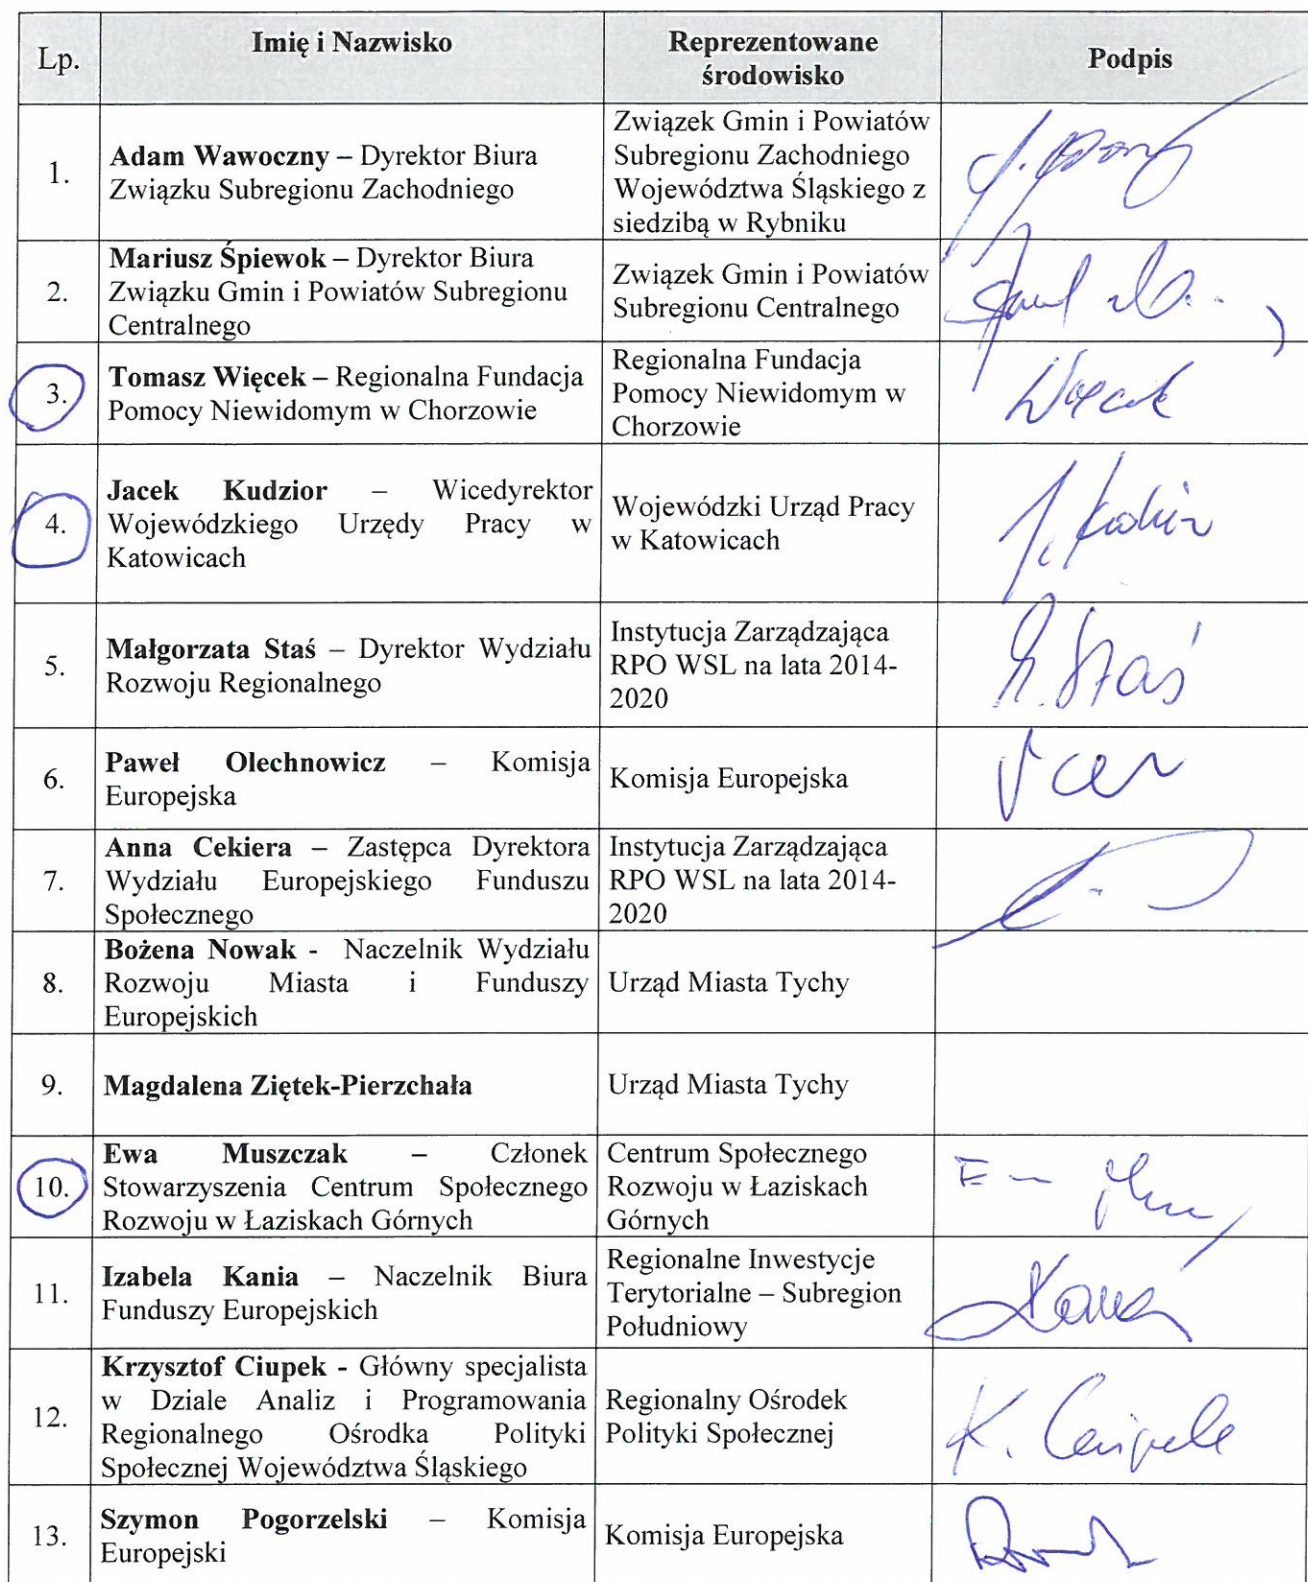 Lp.
Imię i Nazwisko
Reprezentowane
środowisko
Podpis
1.
Adam Wawoczny – Dyrektor Biura
Związku Subregionu Zachodniego
Związek Gmin i Powiatów
Subregionu Zachodniego
Województwa Śląskiego z
siedzibą w Rybniku
2.
Mariusz Śpiewok – Dyrektor Biura
Związku Gmin i Powiatów Subregionu
Centralnego
Związek Gmin i Powiatów
Subregionu Centralnego
3.
Tomasz Więcek – Regionalna Fundacja
Pomocy Niewidomym w Chorzowie
Regionalna Fundacja
Pomocy Niewidomym w
Chorzowie
4.
Jacek Kudzior – Wicedyrektor
Wojewódzkiego Urzędy Pracy w
Katowicach
Wojewódzki Urząd Pracy
w Katowicach
5.
Małgorzata Staś – Dyrektor Wydziału
Rozwoju Regionalnego
Instytucja Zarządzająca
RPO WSL na lata 2014-
2020
Staś
6.
Paweł Olechnowicz – Komisja
Europejska
Komisja Europejska
7.
Anna Cekiera – Zastępca Dyrektora
Wydziału Europejskiego Funduszu
Społecznego
Instytucja Zarządzająca
RPO WSL na lata 2014-
2020
8.
Bożena Nowak - Naczelnik Wydziału
Rozwoju Miasta i Funduszy
Europejskich
Urząd Miasta Tychy
9.
Magdalena Ziętek-Pierzchała
Urząd Miasta Tychy
10.
Ewa Muszczak – Członek
Stowarzyszenia Centrum Społecznego
Rozwoju w Łaziskach Górnych
Centrum Społecznego
Rozwoju w Łaziskach
Górnych
11.
Izabela Kania – Naczelnik Biura
Funduszy Europejskich
Regionalne Inwestycje
Terytorialne – Subregion
Południowy
12.
Krzysztof Ciupek - Główny specjalista
w Dziale Analiz i Programowania
Regionalnego Ośrodka Polityki
Społecznej Województwa Śląskiego
Regionalny Ośrodek
Polityki Społecznej
13.
Szymon Pogorzelski – Komisja
Europejski
Komisja Europejska